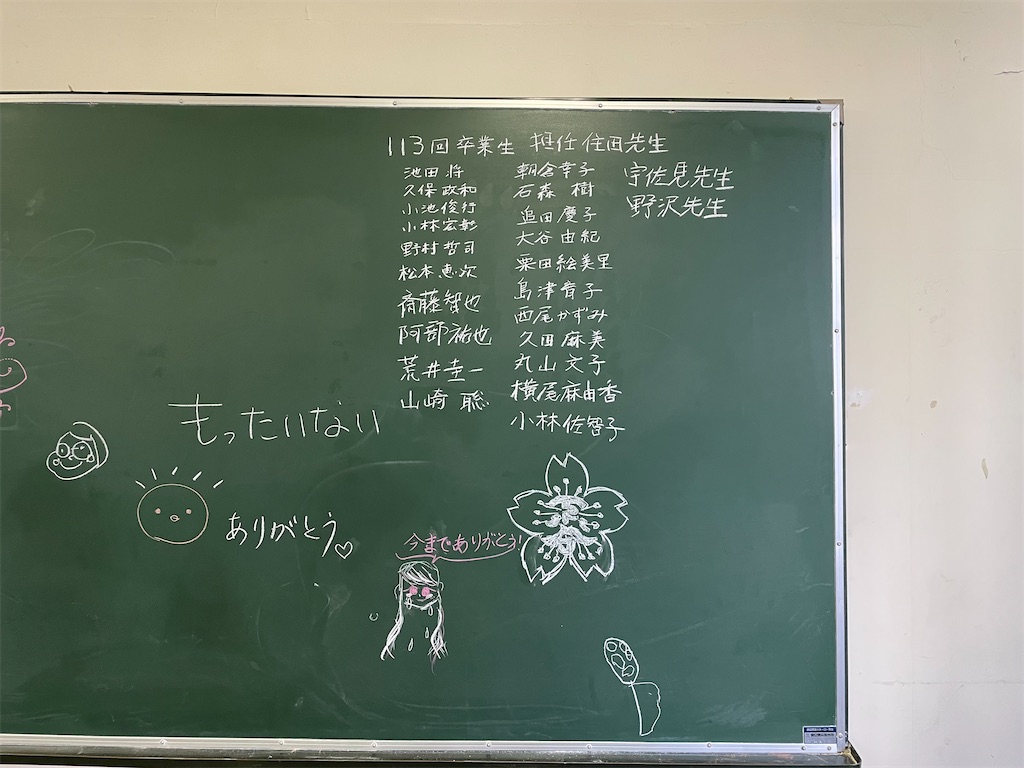 113回卒業生 担任 住田先生
宇佐見先生
野沢先生
池田 将
久保政和
小池俊行
小林宏彰
野村哲司
松本恵次
斎藤智也
阿部祐也
荒井圭一
山崎 聡
朝倉幸子
石森 樹
追田慶子
大谷由紀
栗田絵美里
島津育子
西尾かずみ
久田麻美
丸山文子
横尾麻由香
小林佐智子
もったいない
ありがとう♡
今までありがとう!